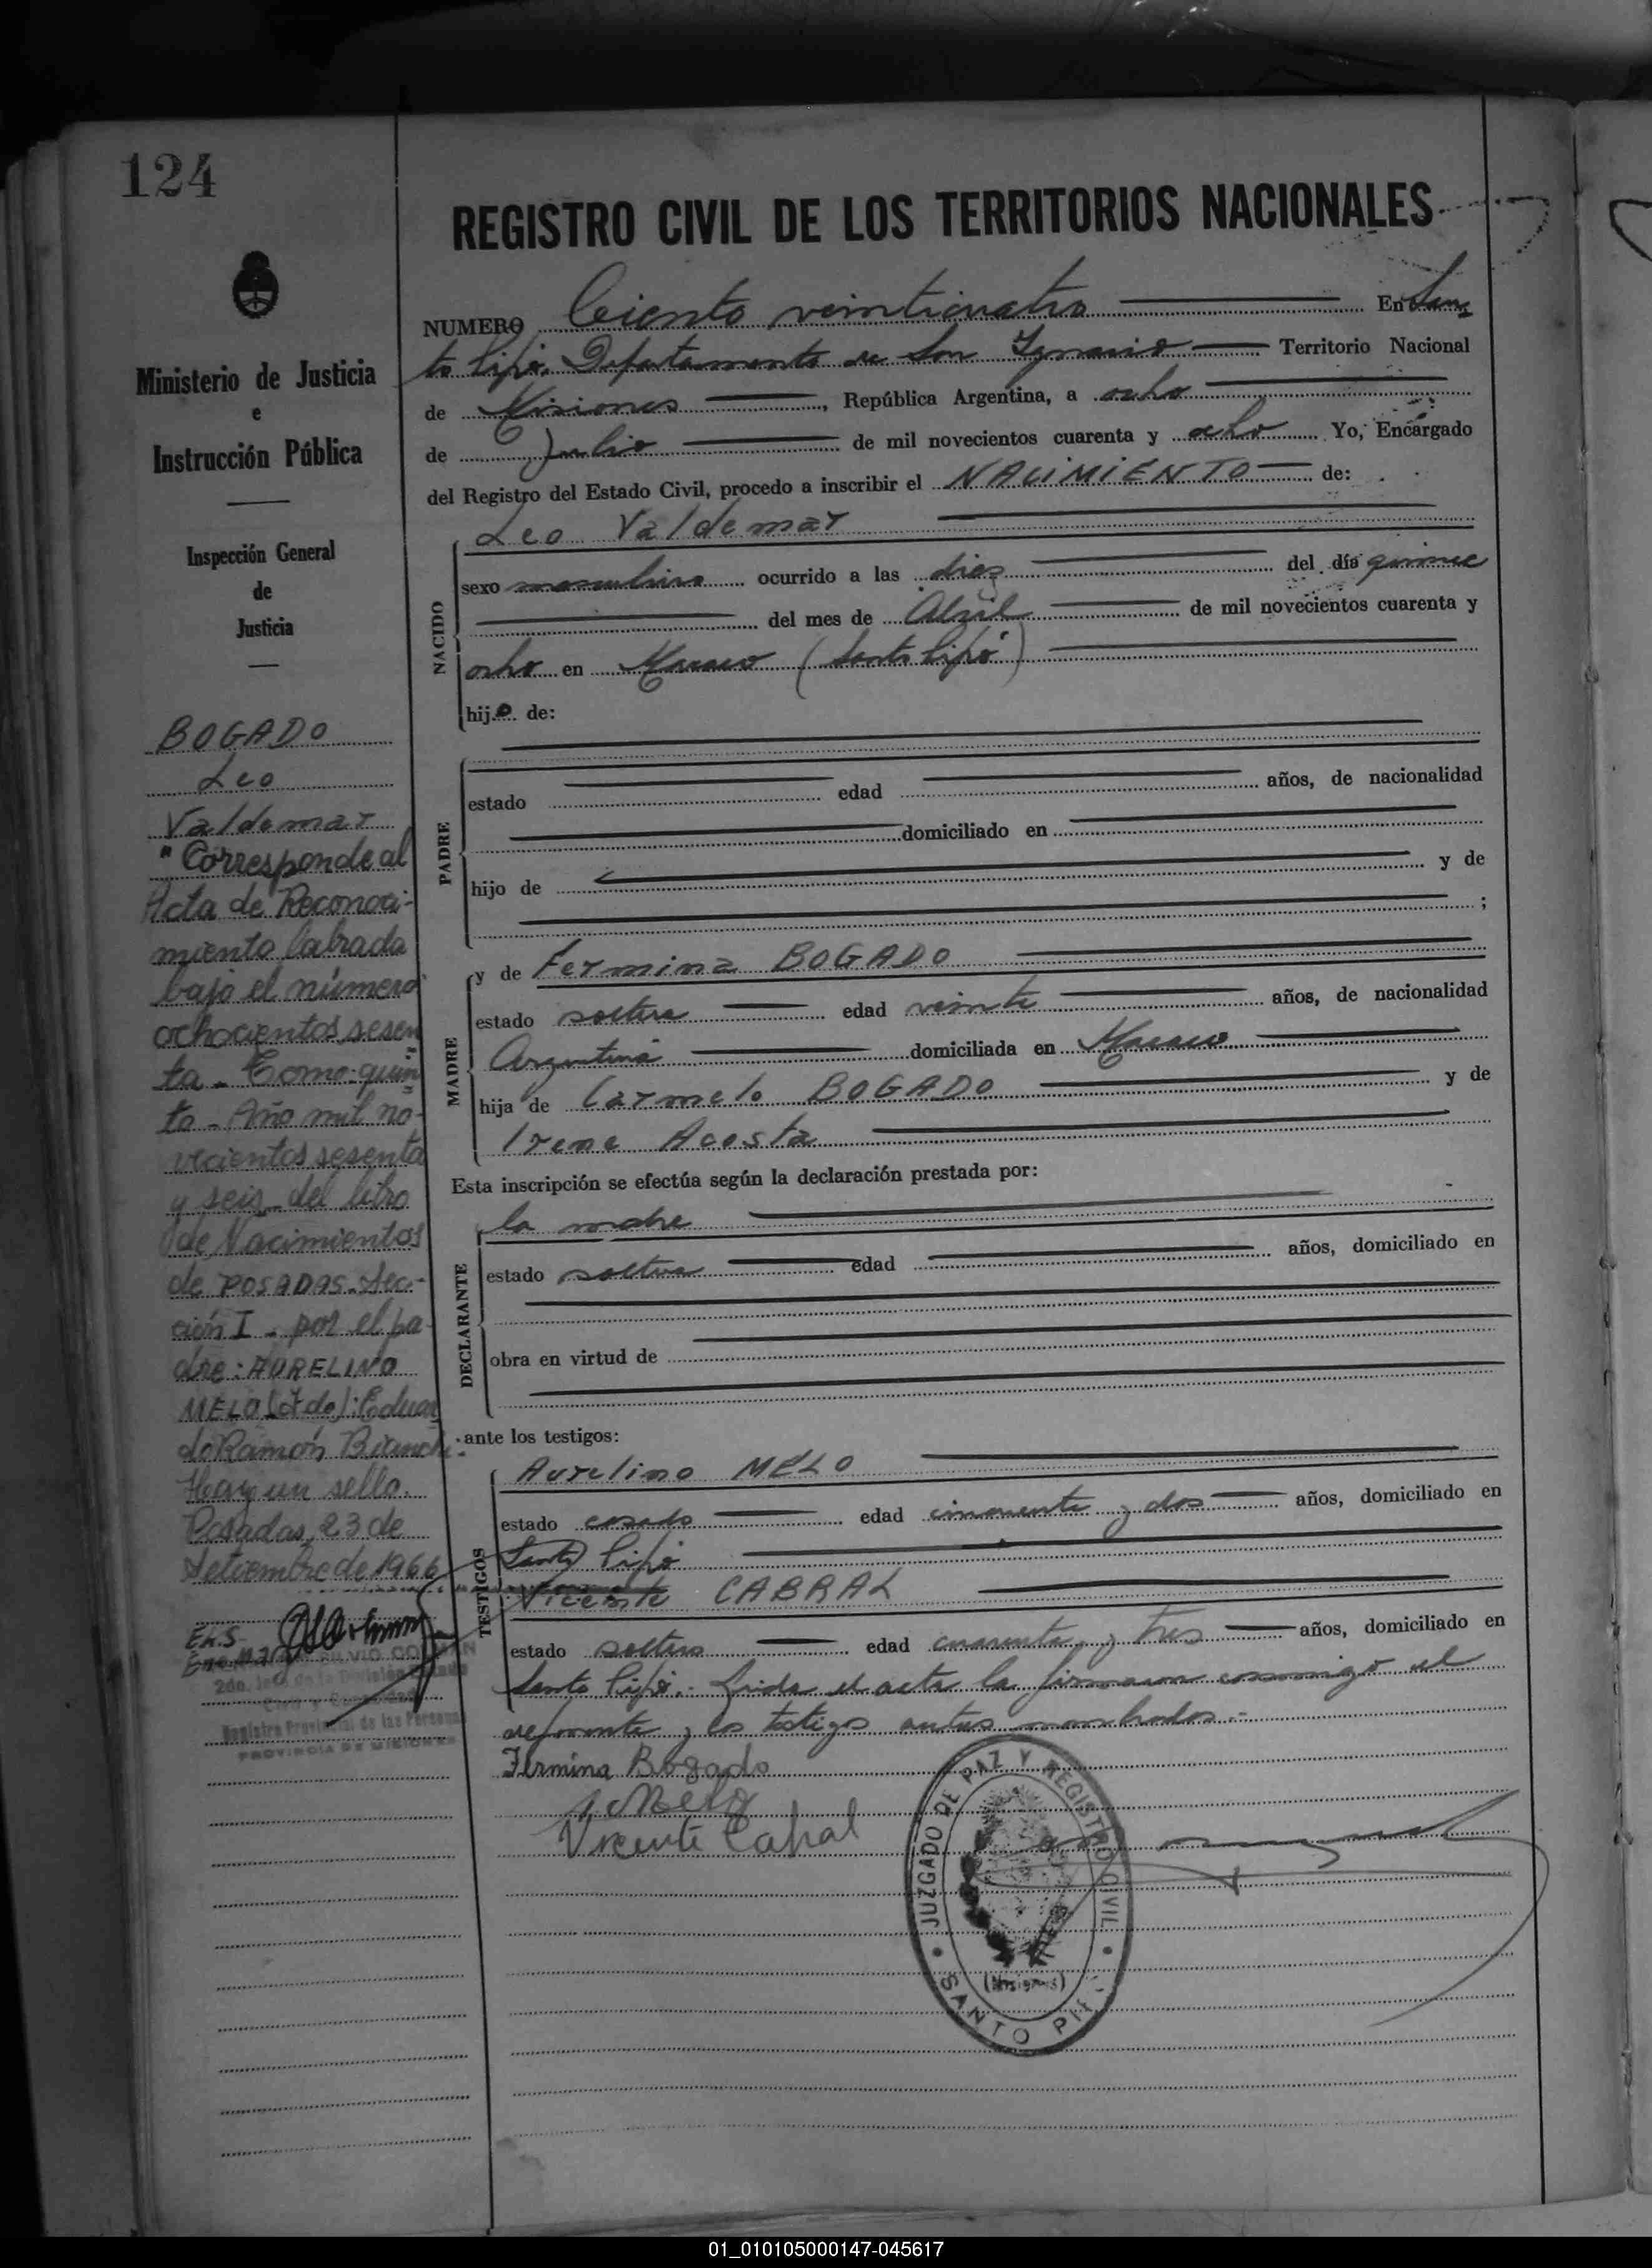 124
REGISTRO CIVIL DE LOS TERRITORIOS NACIONALES
Ministerio de Justicia
e
Instrucción Pública
Inspección General
de
Justicia
BOGADO
Leo
Valdemar
"Corresponde al
Acta de Reconoci-
miento labrada
bajo el número
ochocientos sesen
ta - Tomo quin
to - Año mil no-
vecientos sesenta
y seis - del libro
de Nacimientos
de POSADAS - Sec-
ción I - por el pa
dre: AURELINO
MELO (Fdo): Eduar
do Ramón Bianchi
Hay un sello.
Posadas, 23 de
Setiembre de 1966
E.K.S.
2do. Jefe de la División Estado
Civil y Capacidad
Registro Provincial de las Personas
PROVINCIA DE MISIONES
NUMERO Ciento veinticuatro En San
to Pipó, Departamento de San Ignacio Territorio Nacional
de Misiones, República Argentina, a ocho
de Julio de mil novecientos cuarenta y ocho Yo, Encargado
del Registro del Estado Civil, procedo a inscribir el NACIMIENTO de:
NACIDO
Leo Valdemar
sexo masculino ocurrido a las diez del día quince
del mes de Abril de mil novecientos cuarenta y
ocho en (Santo Pipó)
hijo de:
PADRE
estado edad años, de nacionalidad
domiciliado en
hijo de y de
;
MADRE
y de Fermina BOGADO
estado soltera edad veinte años, de nacionalidad
Argentina domiciliada en
hija de Carmelo BOGADO y de
Irene Acosta
Esta inscripción se efectúa según la declaración prestada por:
DECLARANTE
la madre
estado soltera edad años, domiciliado en
obra en virtud de
ante los testigos:
TESTIGOS
Aurelino MELO
estado casado edad cincuenta y dos años, domiciliado en
Santo Pipó
Vicente CABRAL
estado soltero edad cuarenta y tres años, domiciliado en
Santo Pipó.- Leida el acta la firmaron conmigo el
deponente y los testigos antes nombrados.-
Fermina Bogado
A. Melo
Vicente Cabral
JUZGADO DE PAZ Y REGISTRO CIVIL
(Misiones)
SANTO PIPÓ
01_010105000147-045617